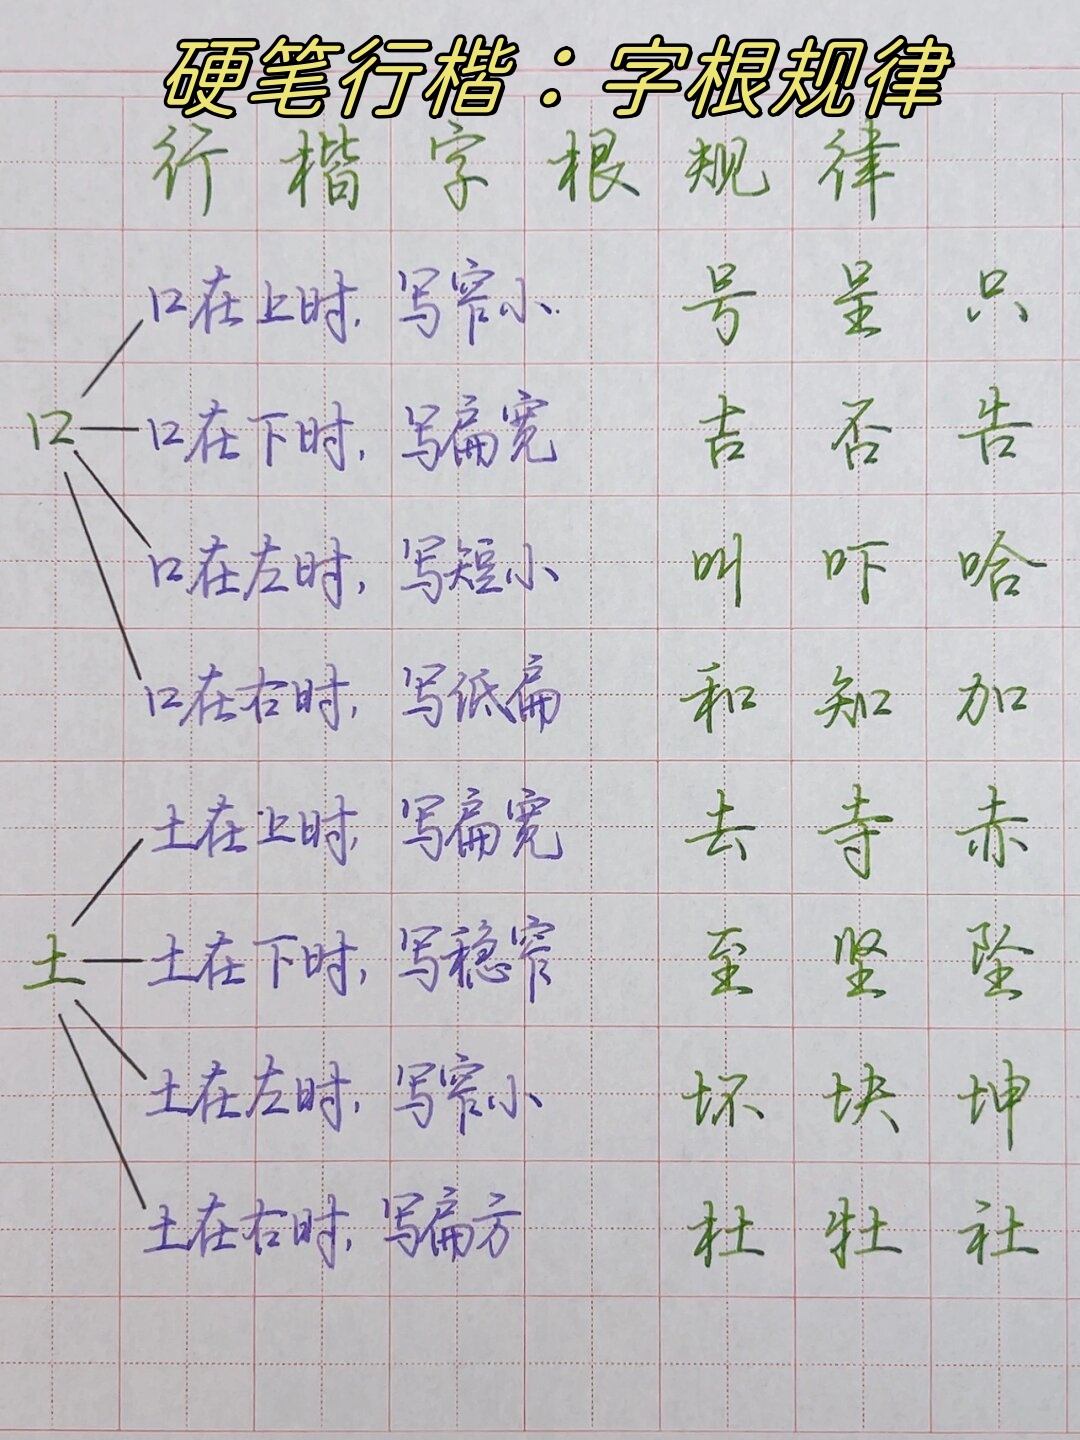 硬笔行楷：字根规律
行楷字根规律
口在上时，写窄小 号 呈 只
口 口在下时，写扁宽 吉 否 告
口在左时，写短小 叫 吓 哈
口在右时，写低扁 和 知 加
土在上时，写扁宽 去 寺 赤
土 土在下时，写稳窄 至 坚 坠
土在左时，写窄小 坏 块 坤
土在右时，写扁方 杜 牡 社